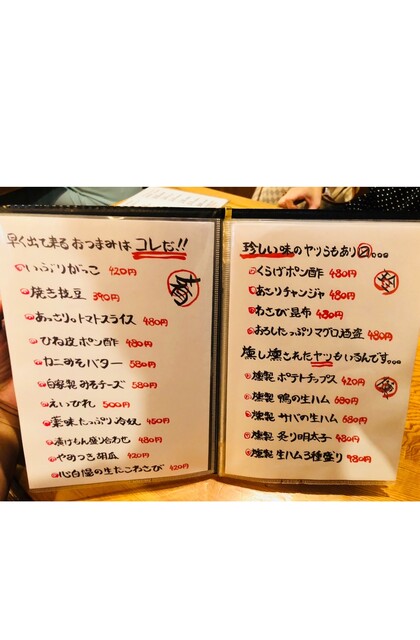 早く出て来るおつまみは コレだ!!
いぶりがっこ 420円
焼き枝豆 390円
あっさり。トマトスライス 480円
ひね皮ポン酢 480円
カニみそバター 580円
自家製みそチーズ 580円
えいひれ 500円
薬味たっぷり冷奴 450円
漬けもん盛り合わせ 480円
やみつき胡瓜 420円
心自慢の生たこわさび 420円
珍しい味のヤツらもあり〼。。。
くらげポン酢 480円
あさりチャンジャ 480円
わさび昆布 430円
おろしたっぷりマグロ酒盗 480円
燻し燻されたヤツもいるんです。。。
燻製 ポテトチップス 420円
燻製 鴨の生ハム 680円
燻製 サバの生ハム 680円
燻製 炙り明太子 480円
燻製 生ハム3種盛り 980円